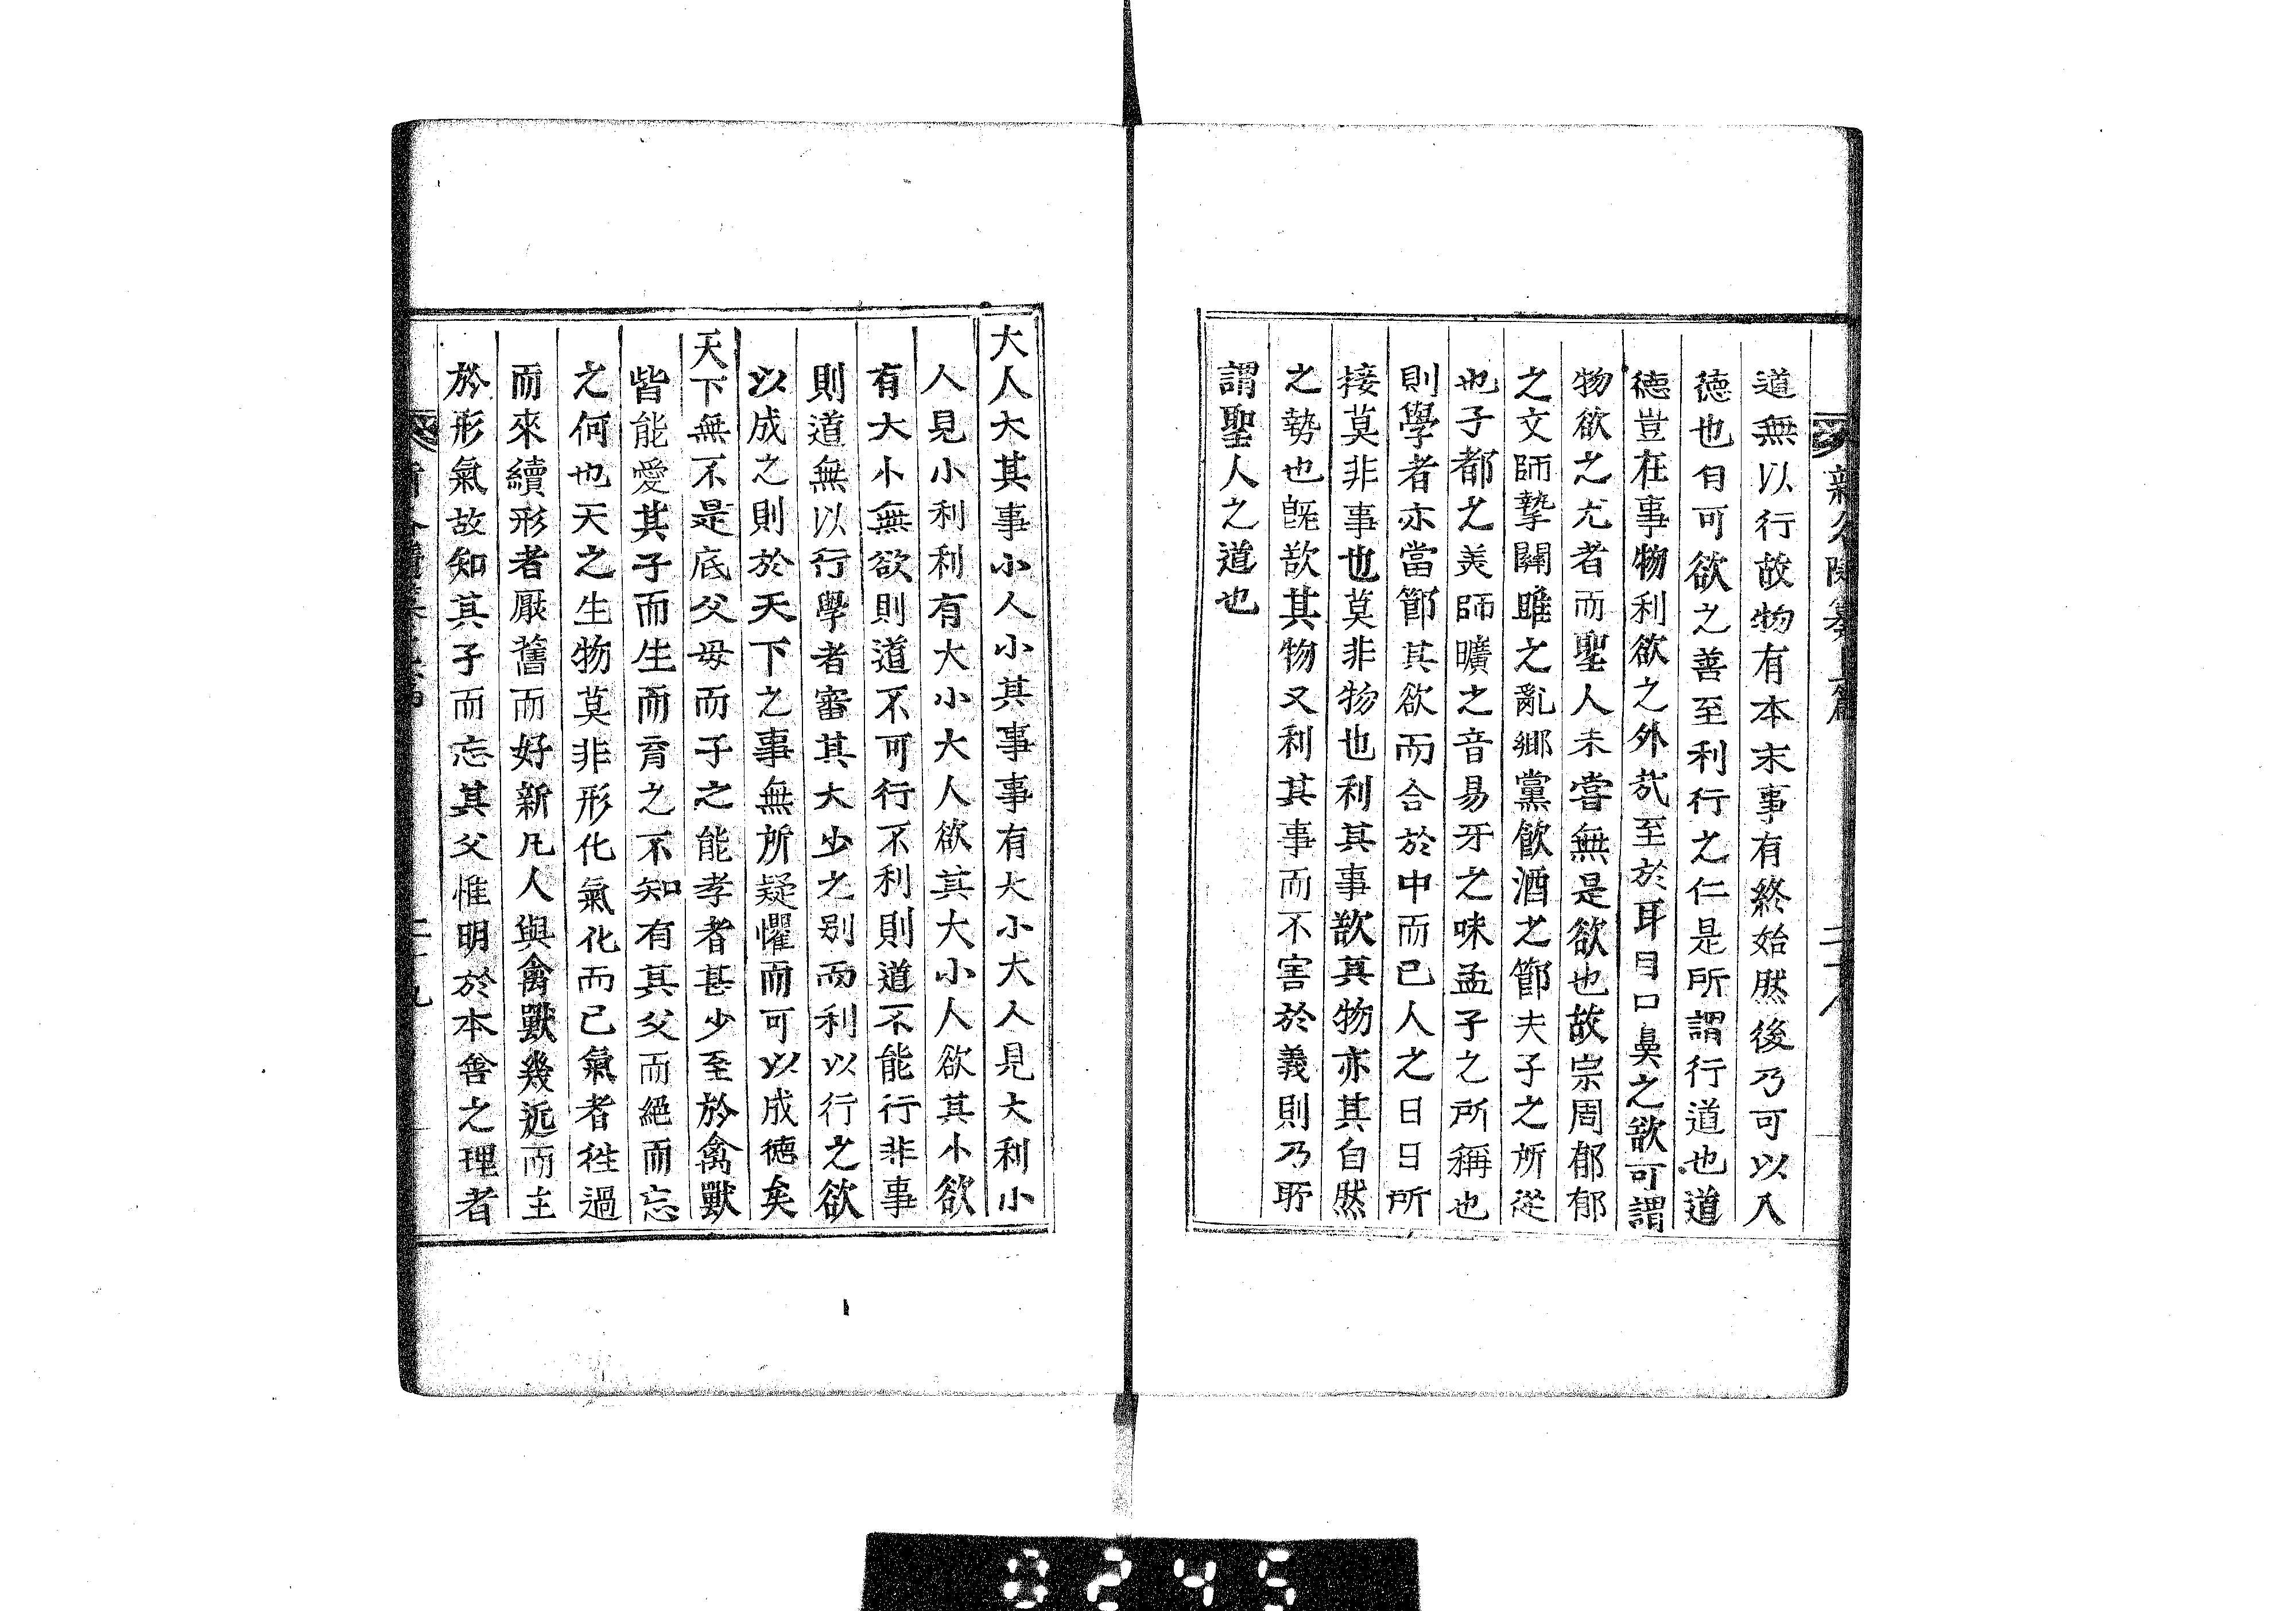 道無以行故物有本末事有終始然後乃可以入
德也旬可欲之善至利行之仁是所謂行道也道
德豈在事物利欲之外㢤至於耳目口鼻之欲可謂
物欲之尤者而聖人未嘗無是欲也故宗周郁郁
之文師摯關雎之亂鄉黨飮酒之節夫子之所從
也子都之美師曠之音易牙之味孟子之所稱也
則學者亦當節其欲而合於中而已人之日日所
接莫非事也莫非物也利其事歆其物亦其自然
之勢也旣歆其物又利其事而不害於義則乃所
謂聖人之道也
大人大其事小人小其事事有大小大人見大利小
人見小利利有大小大人欲其大小人欲其小欲
有大小無欲則道不可行不利則道不能行非事
則道無以行學者審其大少之別而利以行之欲
以成之則於天下之事無所疑懼而可以成德矣
天下無不是底父母而子之能孝者甚少至於禽獸
皆能愛其子而生而育之不知有其父而絕而忘
之何也天之生物莫非形化氣化而已氣者徃過
而來續形者厭舊而好新凡人與禽獸幾近而主
於形氣故知其子而忘其父惟明於本會之理者
二十九
0245